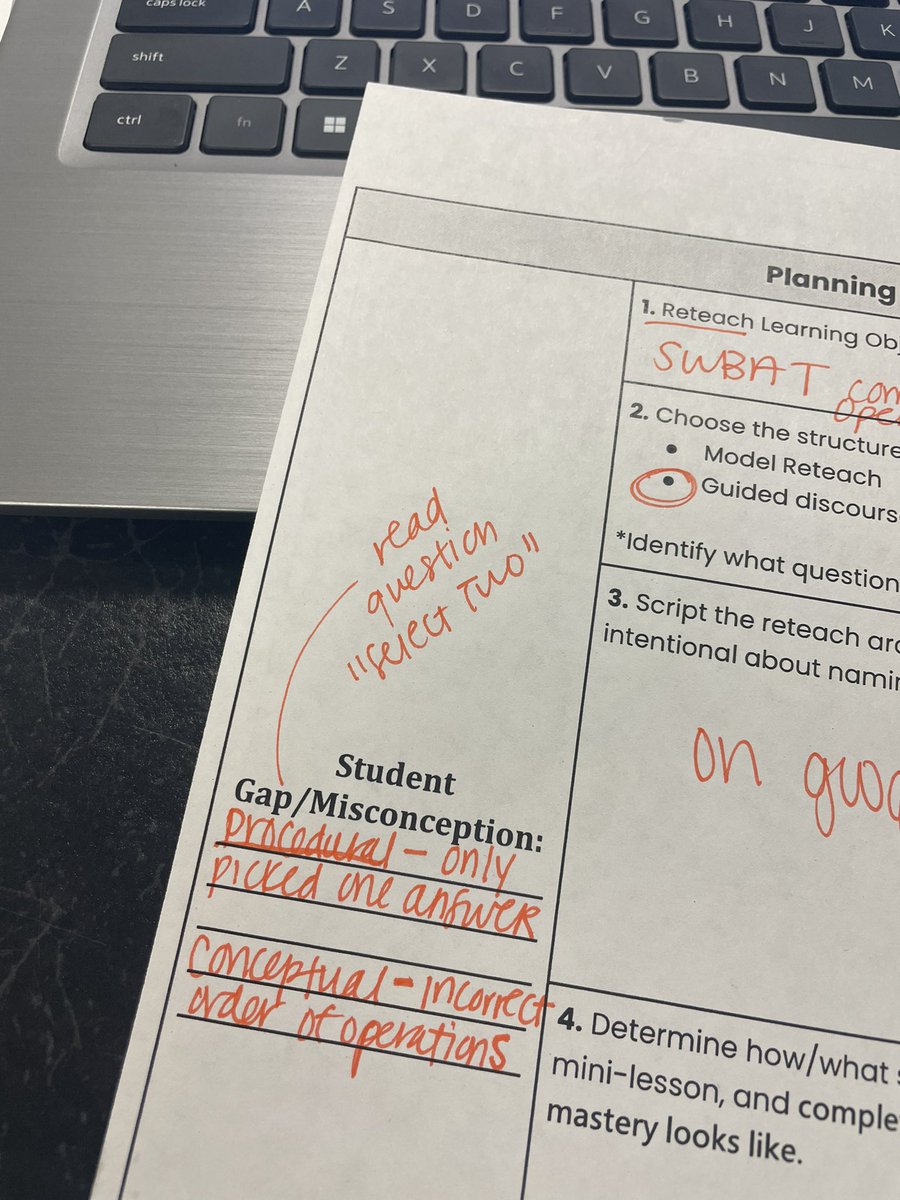 caps lock
A
S
D
F
G
H
J
K
shift
Z
X
C
V
B
N
M
ctrl
fn
Planning
1. Reteach Learning Ob
SWBAT com
ope
2. Choose the structure
• Model Reteach
• Guided discours
*Identify what question
3. Script the reteach aro
intentional about namin
on goo
read
question
"select TWO"
Student
Gap/Misconception:
Procedural - only
picked one answer
conceptual - incorrect
order of operations
4. Determine how/what s
mini-lesson, and comple
mastery looks like.